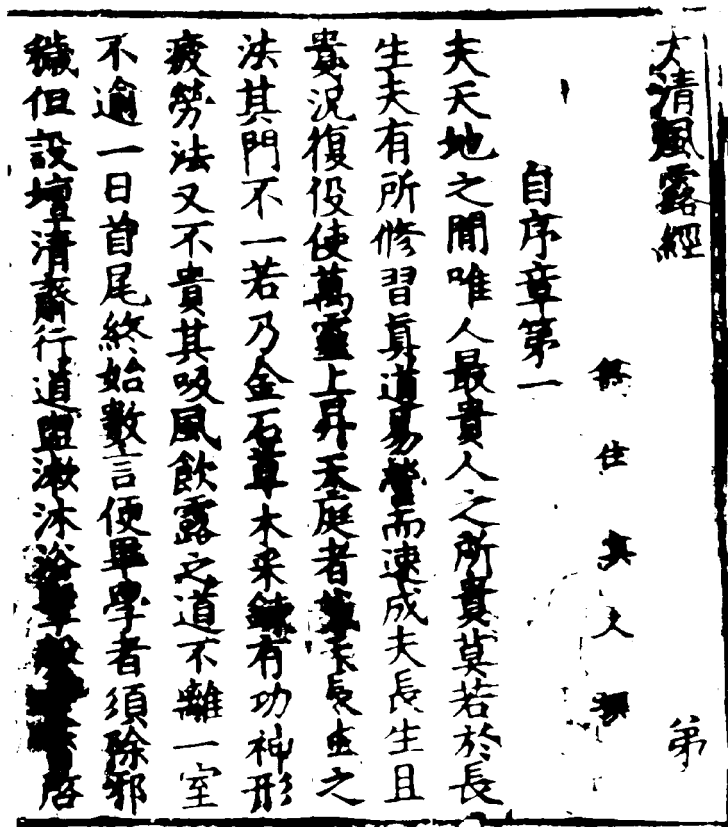 太清風露經
第
無住真人撰
自序章第一
夫天地之間唯人最貴人之所貴莫若於長
生夫有所修習真道易營而速成夫長生且
貴況復役使萬靈上昇天庭者乎長生之
法其門不一若乃金石草木采鍊有功神形
疲勞法又不貴其吸風飲露之道不離一室
不逾一日首尾終始數言便畢學者須除邪
穢但設壇清齋行道盥漱沐浴啓